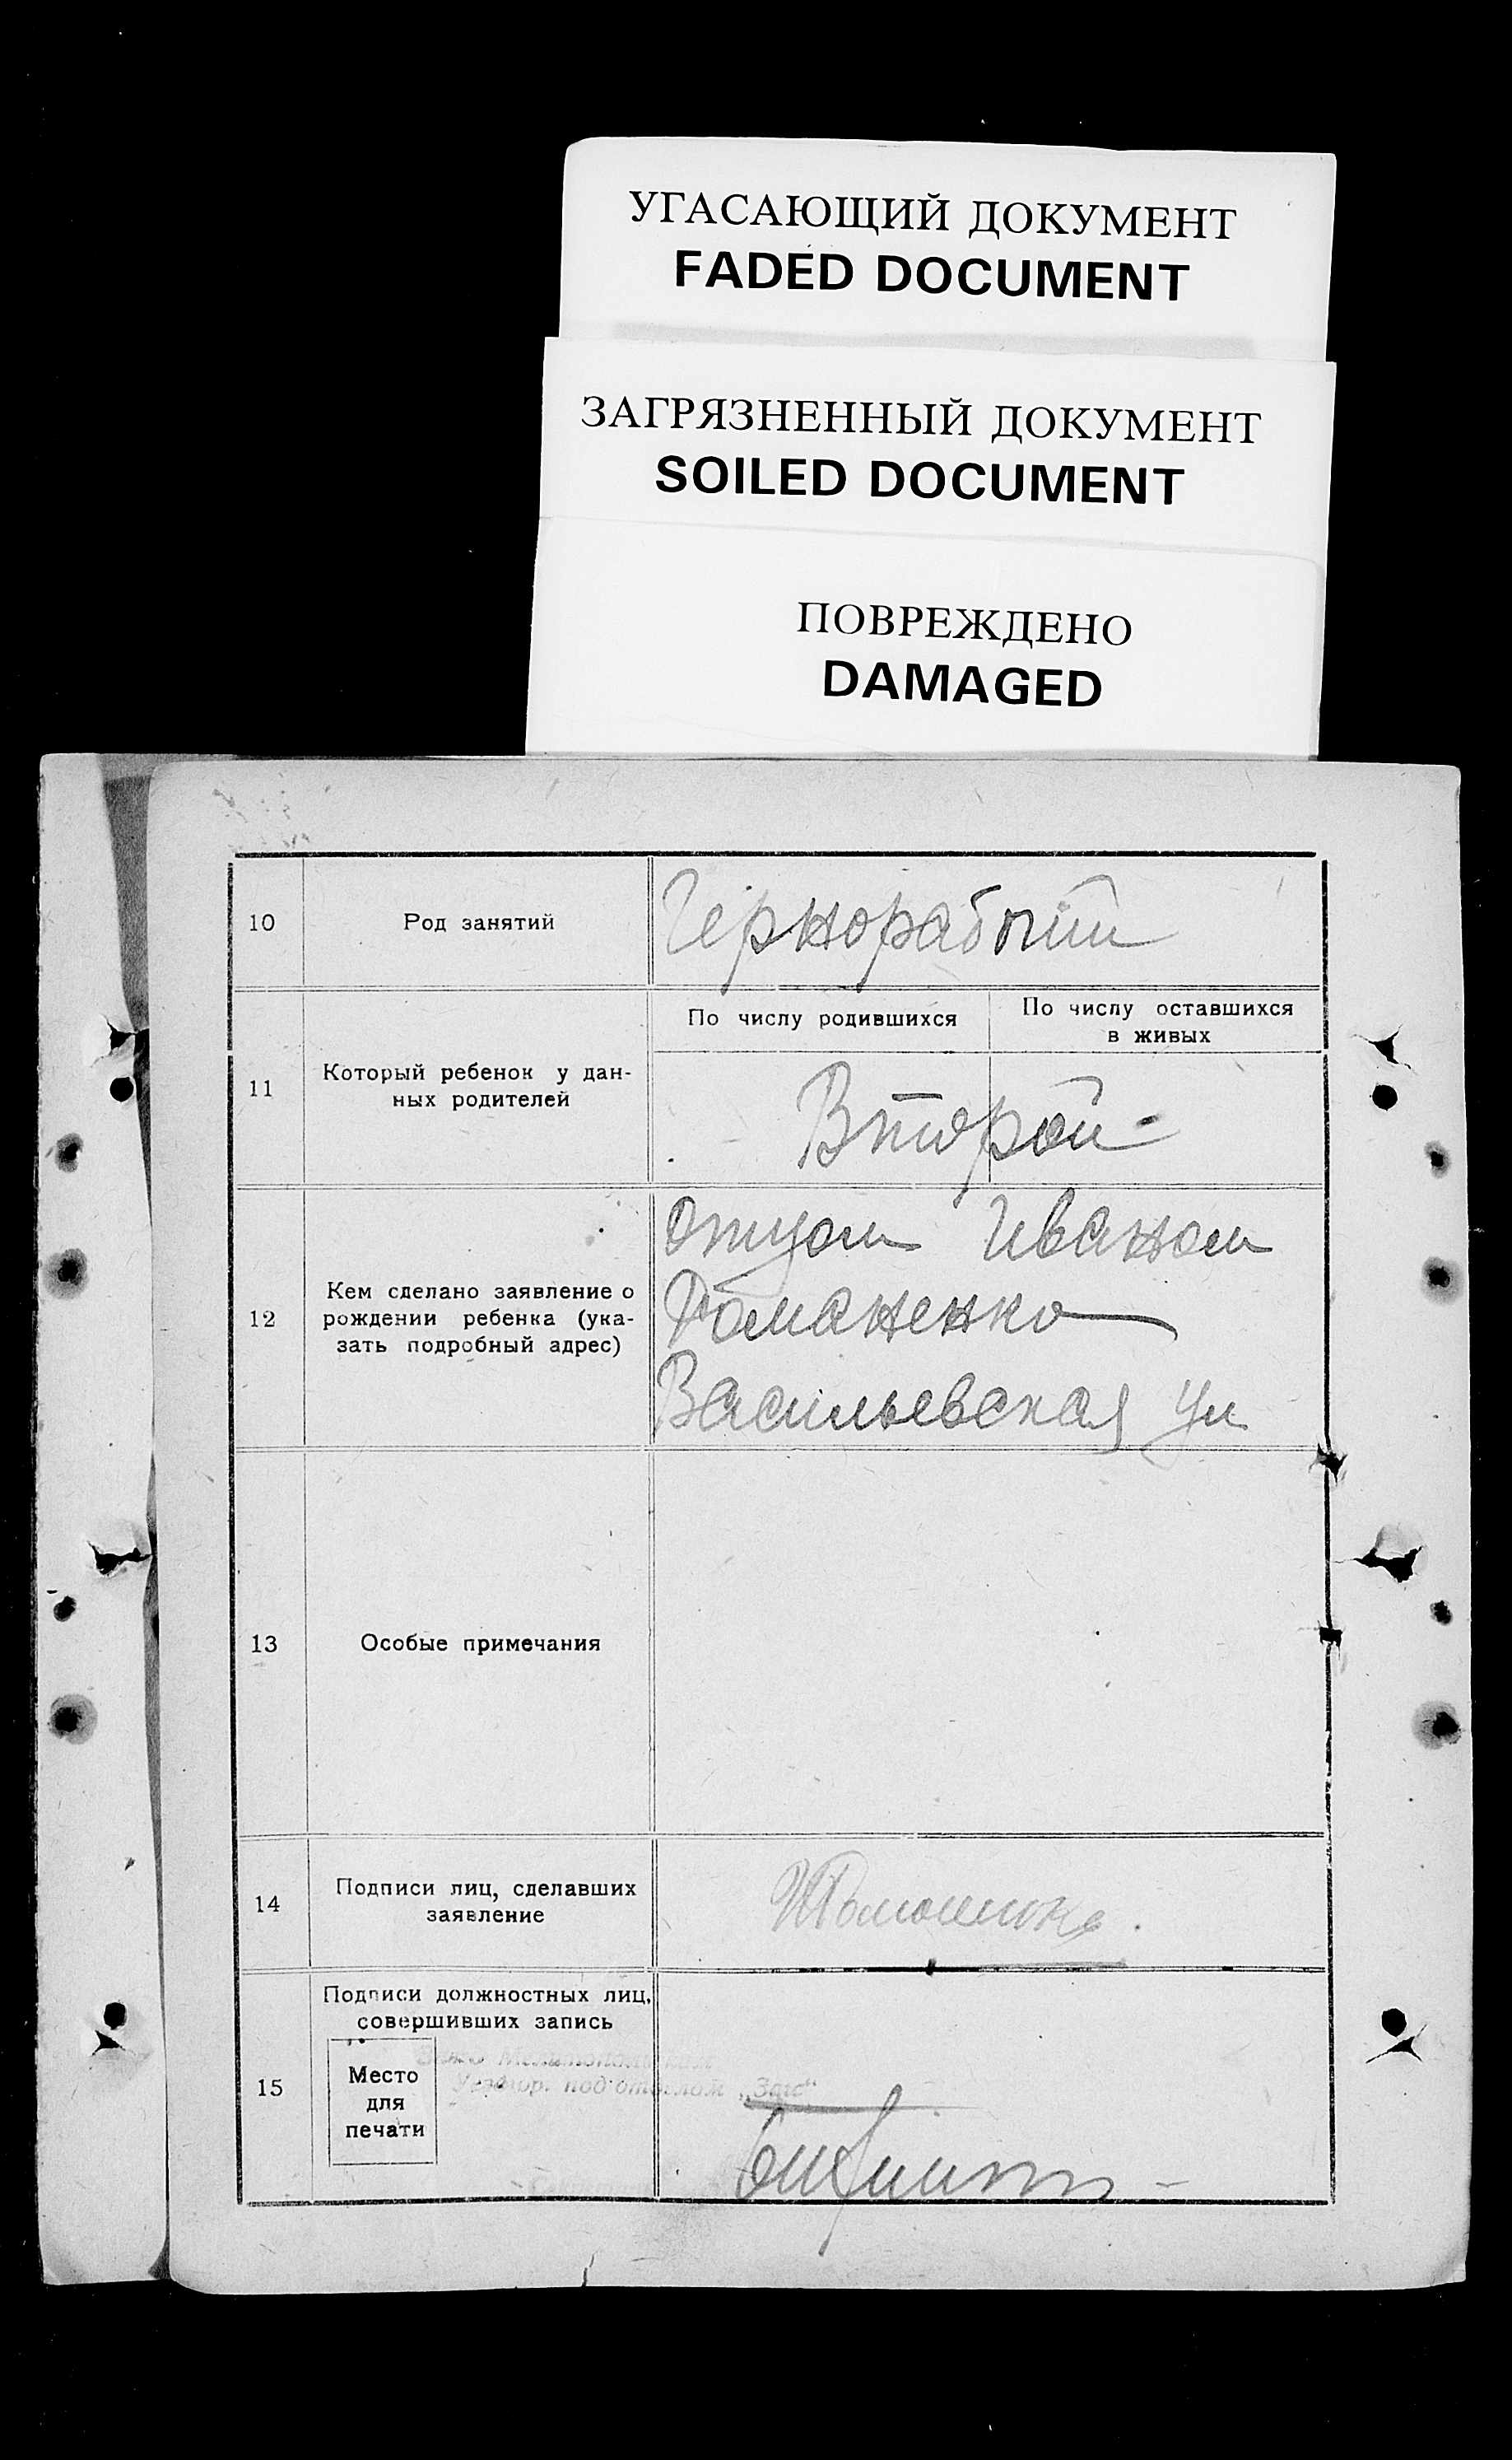 УГАСАЮЩИЙ ДОКУМЕНТ
FADED DOCUMENT
ЗАГРЯЗНЕННЫЙ ДОКУМЕНТ
SOILED DOCUMENT
ПОВРЕЖДЕНО
DAMAGED
10
Род занятий
Чернорабочий
11
Который ребенок у дан-
ных родителей
По числу родившихся
По числу оставшихся
в живых
Второй
12
Кем сделано заявление о
рождении ребенка (ука-
зать подробный адрес)
отцом Иваном
Романенко
Васильевская ул
13
Особые примечания
14
Подписи лиц, сделавших
заявление
15
Подписи должностных лиц,
совершивших запись
Место
для
печати
под'отделом „Загс“